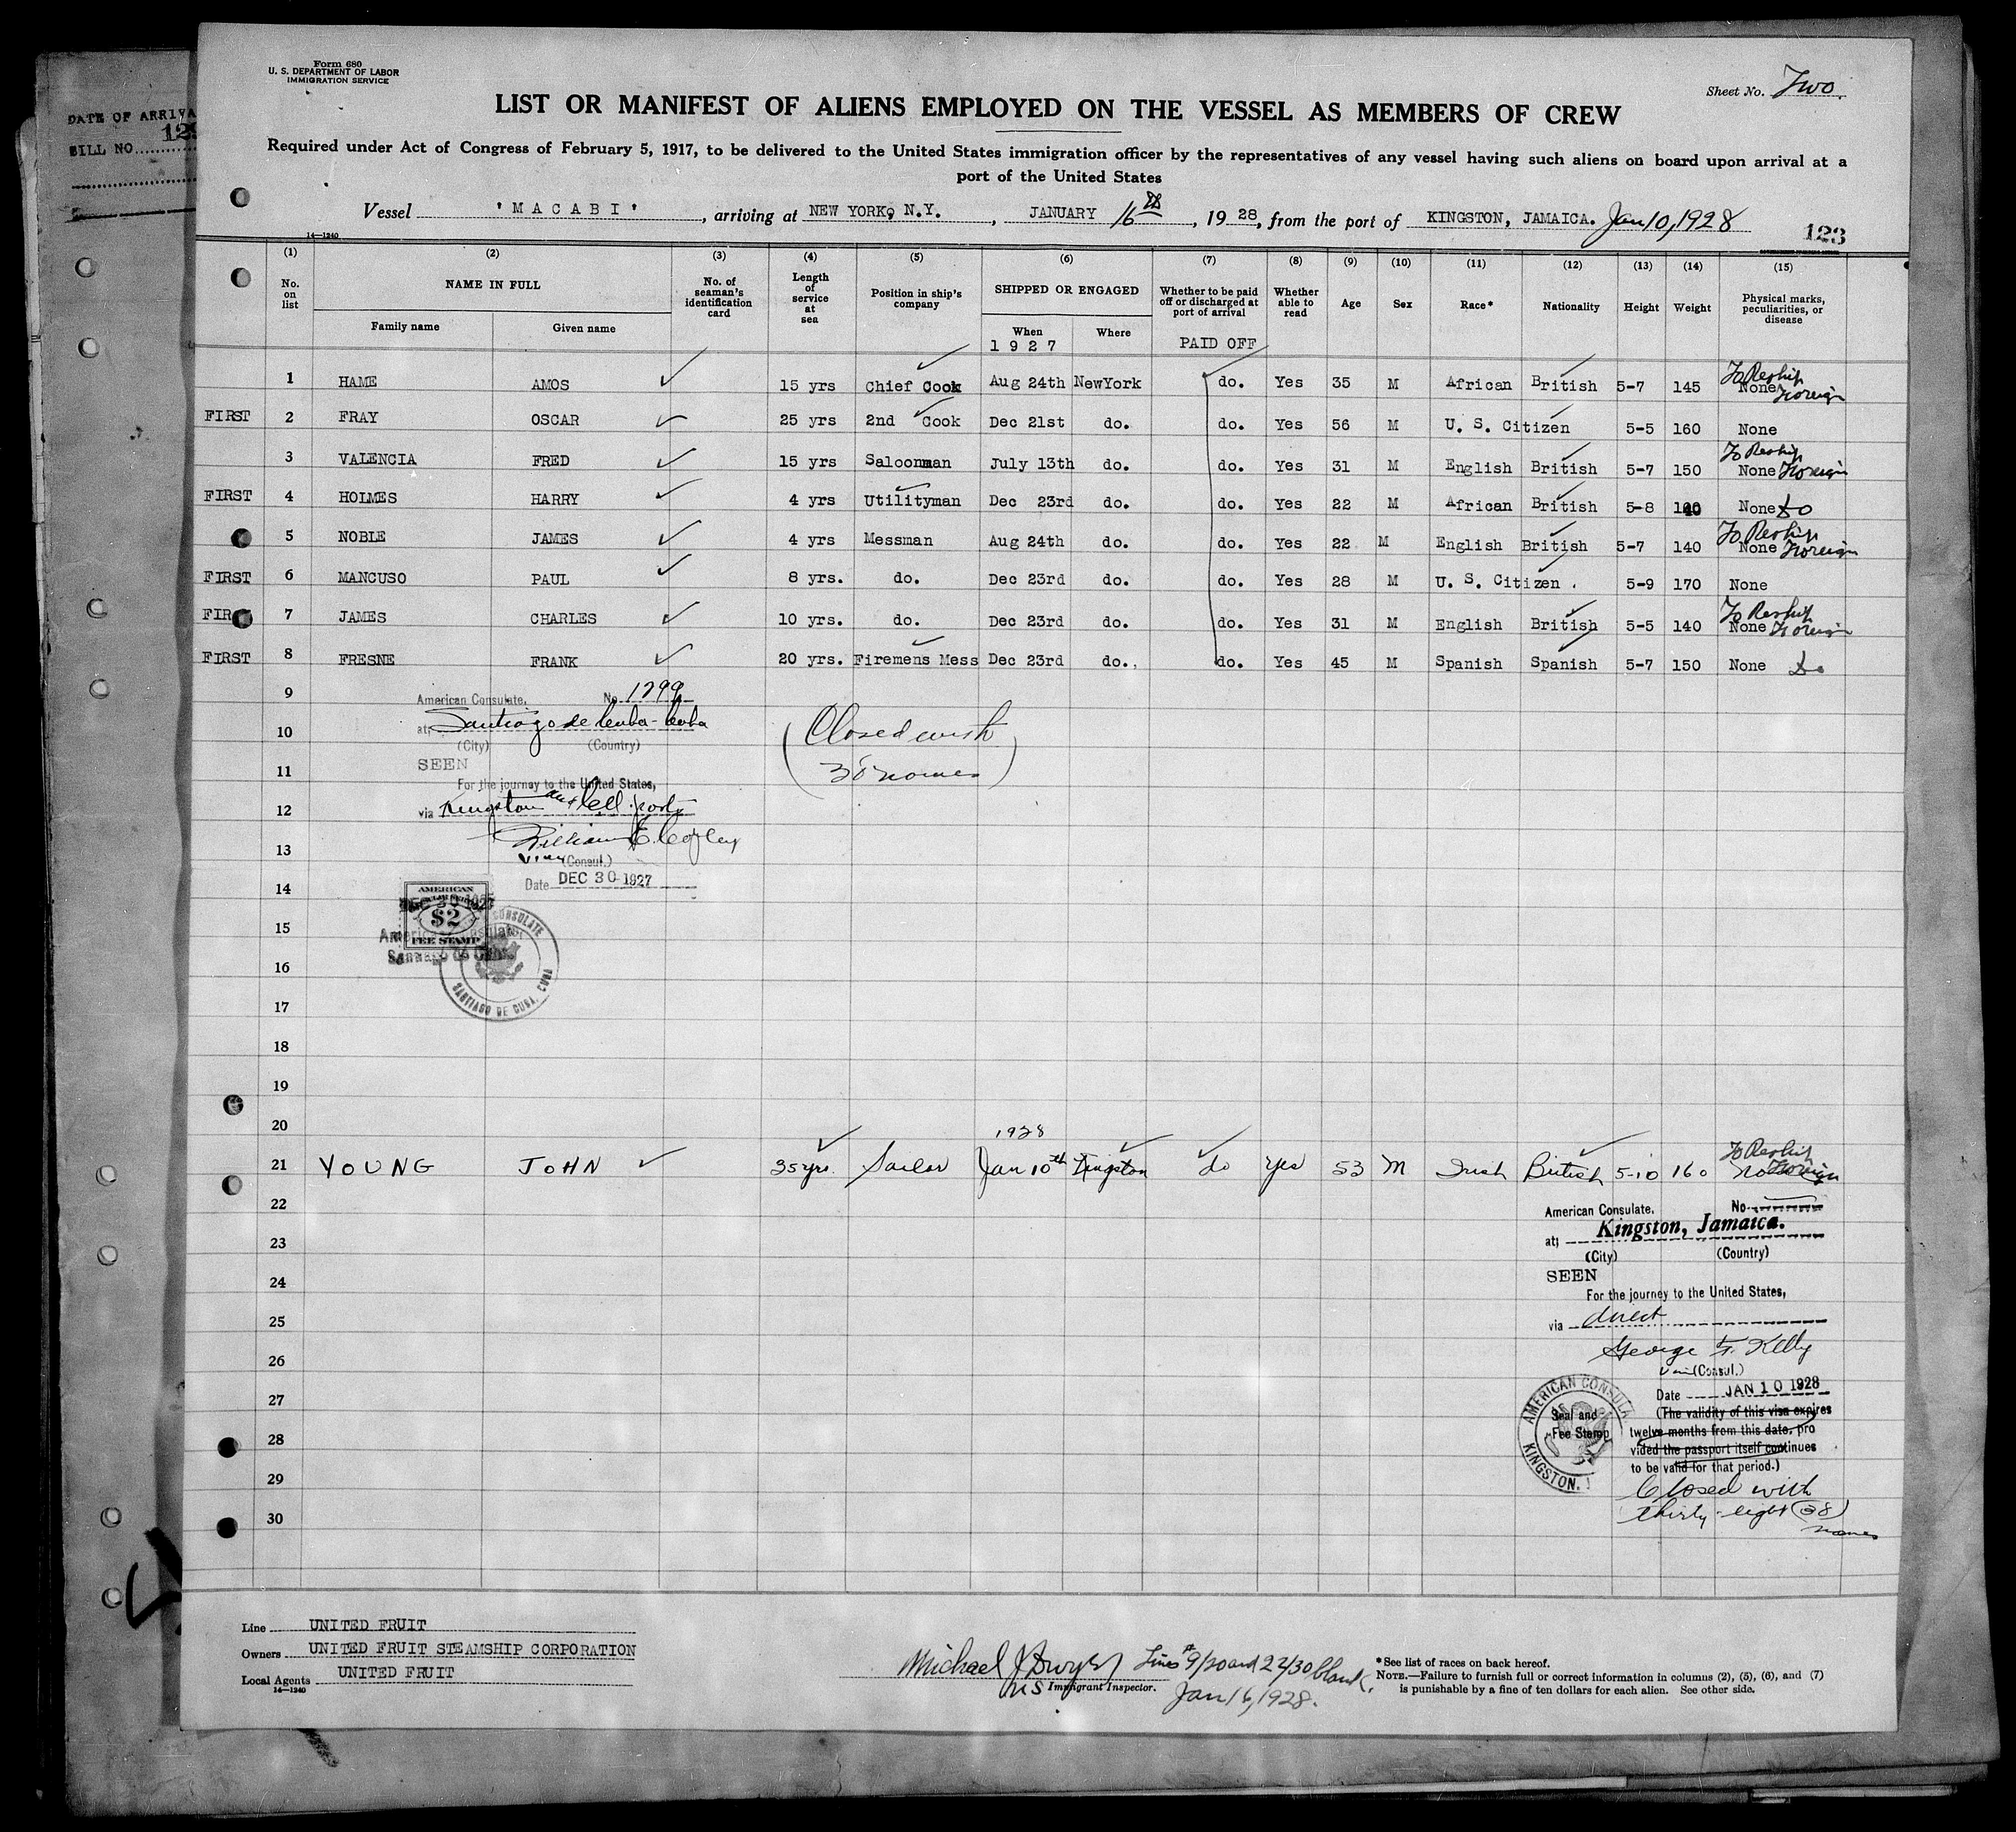 DATE OF ARRIVA
BILL NO
Form 680
U. S. DEPARTMENT OF LABOR
IMMIGRATION SERVICE
Sheet No. Two
LIST OR MANIFEST OF ALIENS EMPLOYED ON THE VESSEL AS MEMBERS OF CREW
Required under Act of Congress of February 5, 1917, to be delivered to the United States immigration officer by the representatives of any vessel having such aliens on board upon arrival at a
port of the United States
Vessel 'MACABI', arriving at NEW YORK, N.Y., JANUARY 16th, 1928, from the port of KINGSTON, JAMAICA. Jan 10, 1928
14—1240
123
(1) (2) (3) (4) (5) (6) (7) (8) (9) (10) (11) (12) (13) (14) (15)
No. on list NAME IN FULL Family name Given name No. of seaman's identification card Length of service at sea Position in ship's company SHIPPED OR ENGAGED When 1927 Where Whether to be paid off or discharged at port of arrival PAID OFF Whether able to read Age Sex Race* Nationality Height Weight Physical marks, peculiarities, or disease
1 HAME AMOS 15 yrs Chief Cook Aug 24th NewYork do. Yes 35 M African British 5-7 145 None To Reship Foreign
FIRST 2 FRAY OSCAR 25 yrs 2nd Cook Dec 21st do. do. Yes 56 M U. S. Citizen 5-5 160 None
3 VALENCIA FRED 15 yrs Saloonman July 13th do. do. Yes 31 M English British 5-7 150 None To Reship Foreign
FIRST 4 HOLMES HARRY 4 yrs Utilityman Dec 23rd do. do. Yes 22 M African British 5-8 None do
5 NOBLE JAMES 4 yrs Messman Aug 24th do. do. Yes 22 M English British 5-7 140 None To Reship Foreign
FIRST 6 MANCUSO PAUL 8 yrs. do. Dec 23rd do. do. Yes 28 M U. S. Citizen. 5-9 170 None
FIRST 7 JAMES CHARLES 10 yrs. do. Dec 23rd do. do. Yes 31 M English British 5-5 140 None To Reship Foreign
FIRST 8 FRESNE FRANK 20 yrs. Firemens Mess Dec 23rd do. do. Yes 45 M Spanish Spanish 5-7 150 None do
9
10
11
12
13
14
15
16
17
18
19
20
American Consulate, No. 1299
at Santiago de Cuba - Cuba
(City) (Country)
SEEN
For the journey to the United States,
via Kingston and Cell ports
William E. Copley
Vice (Consul.)
Date DEC 30 1927
(Closed with
38 names)
AMERICAN
$2
FEE STAMP
DEC 30 1927
American Consulate,
Santiago de Cuba
CONSULATE
SANTIAGO DE CUBA, CUBA
1928
21 YOUNG JOHN 35 yrs. Sailor Jan 10th Kingston do Yes 53 M Irish British 5-10 160 None To Reship Foreign
22
23
24
25
26
27
28
29
30
American Consulate. No
at Kingston, Jamaica.
(City) (Country)
SEEN
For the journey to the United States,
via direct
George F. Kelly
Vice (Consul.)
Date JAN 10 1928
(The validity of this visa expires
twelve months from this date, pro
vided the passport itself continues
to be valid for that period.)
AMERICAN CONSULA
KINGSTON,
Seal and
Fee Stamp
Closed with
thirty-eight (38)
names
Line UNITED FRUIT
Owners UNITED FRUIT STEAMSHIP CORPORATION
Local Agents UNITED FRUIT
14—1240
Michael J Dwyer
Immigrant Inspector.
Lines # 9/20 and 22/30 blank.
Jan 16, 1928.
*See list of races on back hereof.
NOTE.—Failure to furnish full or correct information in columns (2), (5), (6), and (7)
is punishable by a fine of ten dollars for each alien. See other side.